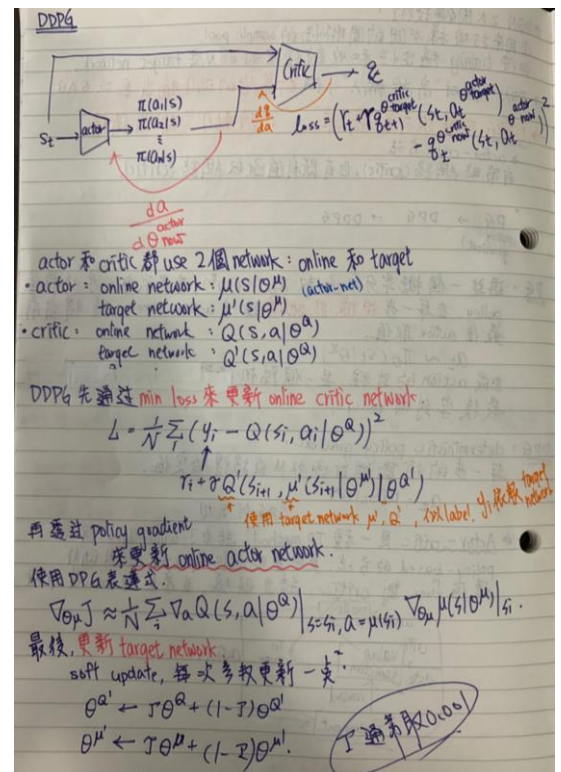 DDPG
Critic → q
π(a₁|s)
St → actor → π(a₂|s)
⋮
π(aₙ|s)
dq/da
loss = (rt + γ q_{t+1}^{θ^{critic}_{target}} (st, at^{θ^{actor}_{target}})
- q_t^{θ^{critic}_{now}} (st, at^{θ^{actor}_{now}}))²
da/dθ^{actor}_{now}
actor 和 critic 都 use 2 個 network : online 和 target
• actor : online network : μ(s|θ^μ) (actor-net)
target network : μ'(s|θ^μ')
• critic : online network : Q(s,a|θ^Q)
target network : Q'(s,a|θ^Q)
DDPG 先通过 min loss 來更新 online critic network
L = 1/N Σᵢ (yᵢ - Q(sᵢ, aᵢ|θ^Q))²
↑
rᵢ + γ Q'(sᵢ₊₁, μ'(sᵢ₊₁|θ^μ')|θ^Q')
使用 target network μ', Q', label yᵢ target network
再透过 policy gradient
來更新 online actor network.
使用 DPG 表達式.
∇_{θμ} J ≈ 1/N Σᵢ ∇ₐ Q(s,a|θ^Q)|_{s=sᵢ, a=μ(sᵢ)} ∇_{θμ} μ(s|θ^μ)|_{sᵢ}.
最後, 更新 target network.
soft update, 每次參數更新一点.
θ^Q' ← τθ^Q + (1-τ)θ^Q'
θ^μ' ← τθ^μ + (1-τ)θ^μ'.
τ 通常取 0.001